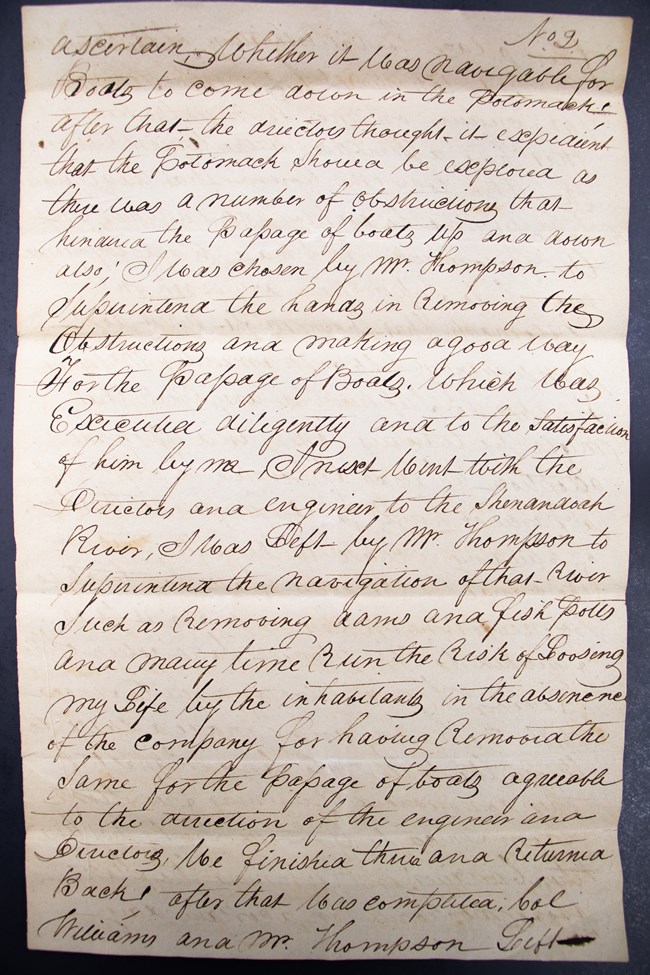 No 2
ascertain, Whether it was navigable for
Boats to come down in the Potomack.
after that the directors thought it expedient
that the Potomack Should be explored as
there was a number of obstructions that
hindred the Passage of boats up and down
also; I was chosen by Mr. Thompson to
Superintend the hands in Removing the
Obstructions and making a good way
For the Passage of Boats. Which was
Executed diligently and to the Satisfaction
of him by me, I next Went with the
Directors and engineer to the Shenandoah
River, I was Left by Mr. Thompson to
Superintend the navigation of that River
Such as Removing dams and fish Potts
and many time Run the Risk of Loosing
my Life by the inhabitants in the absence
of the company for having Removed the
Same for the Passage of boats agreeable
to the direction of the engineer and
Directors, We finished there and Returned
Back. after that was completed; Col
Williams and Mr. Thompson Left